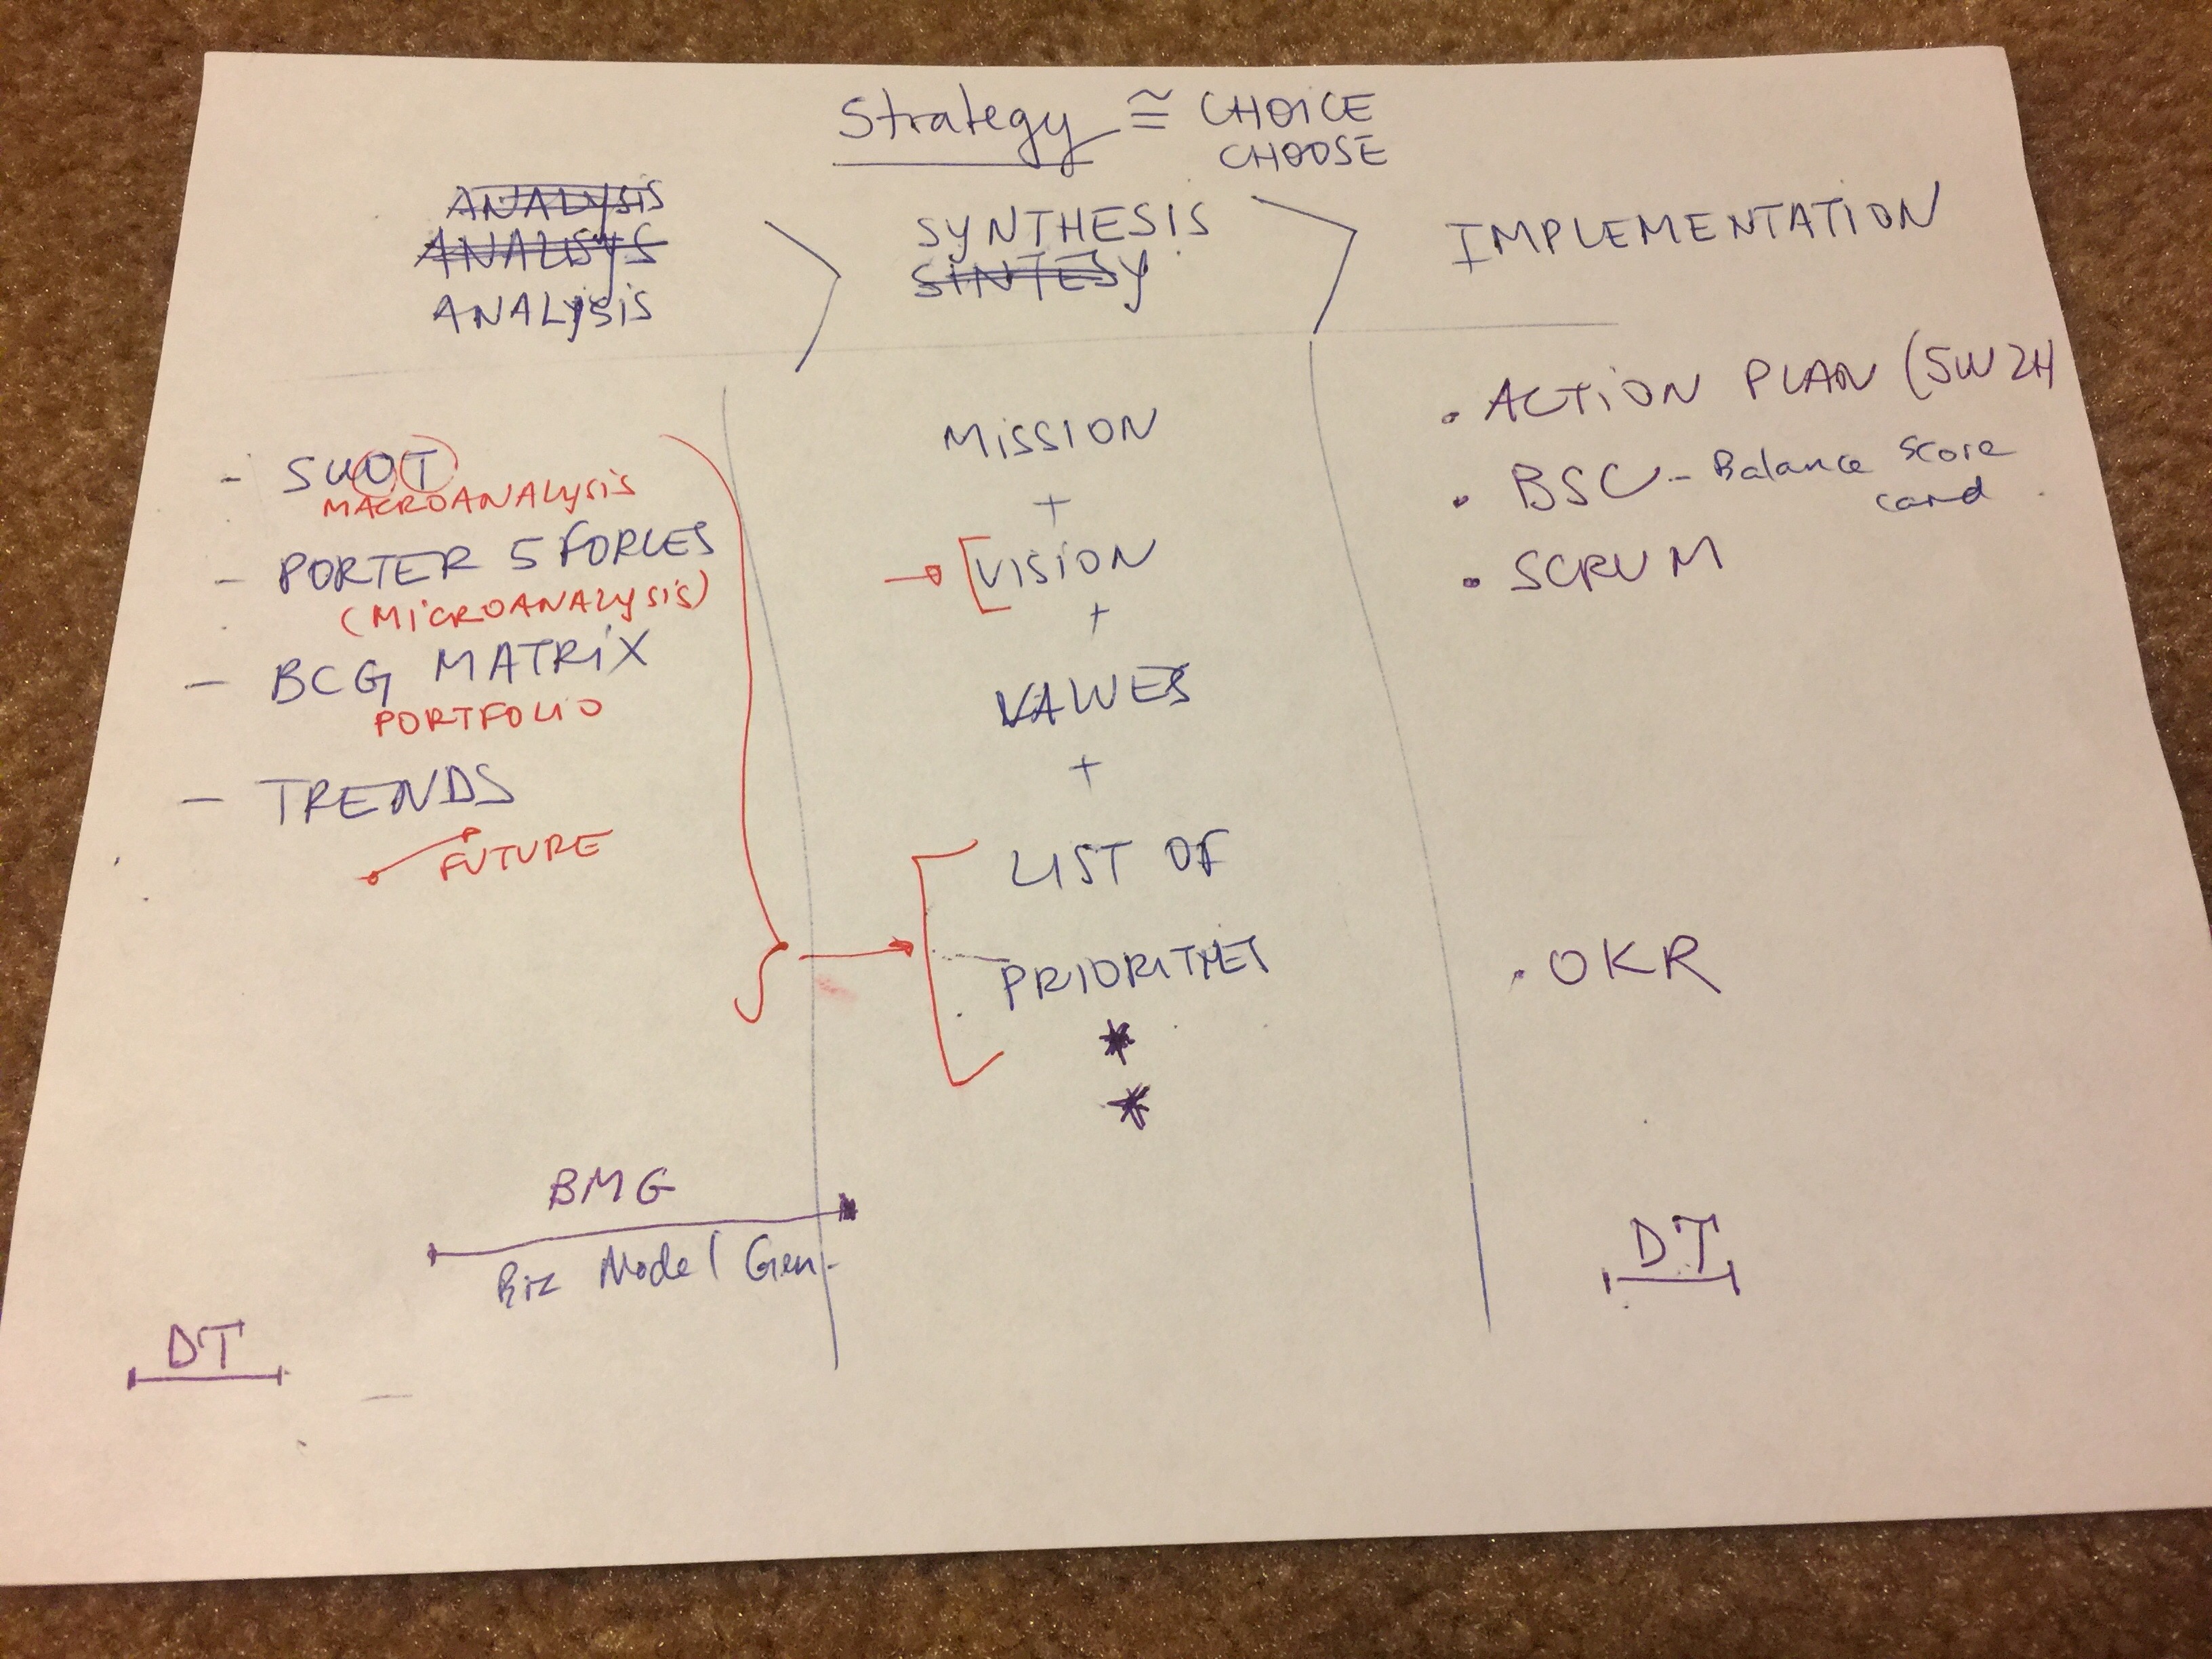 Strategy ≅ CHOICE
CHOOSE
ANALYSIS
ANALISYS
ANALYSIS
SYNTHESIS
SINTESY
IMPLEMENTATION
- SWOT
MACROANALYSIS
- PORTER 5 FORCES
(MICROANALYSIS)
- BCG MATRIX
PORTFOLIO
- TRENDS
FUTURE
MISSION
+
VISION
+
VALUES
+
LIST OF
PRIORITIES
*
*
• ACTION PLAN (5W2H
• BSC - Balance Score
card
• SCRUM
• OKR
BMG
Biz Model Gen.
DT
DT